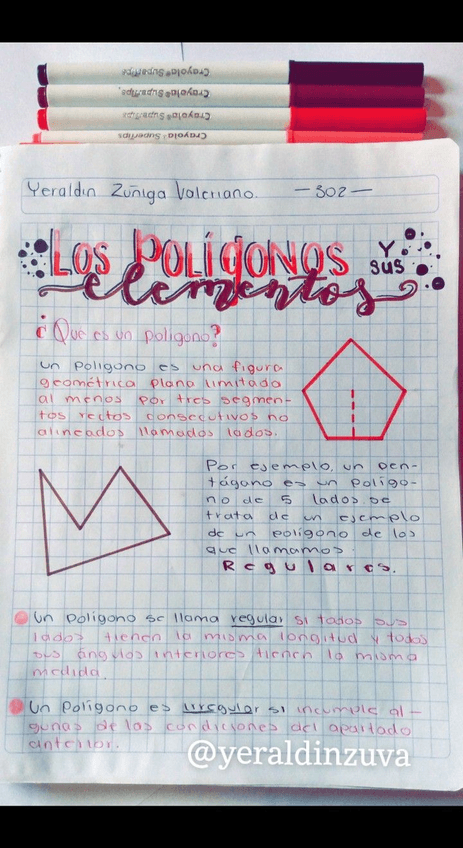 Crayola® SuperTips
Crayola® SuperTips
Crayola® SuperTips
Crayola® SuperTips
Yeraldin Zúñiga Valeriano. — 302 —
LOS POLÍGONOS Y sus
elementos
¿Qué es un polígono?
Un Polígono es una figura
geométrica plana limitada
al menos por tres segmen-
tos rectos consecutivos no
alineados llamados lados.
Por ejemplo, un pen-
tágono es un Polígo-
no de 5 lados se
trata de un ejemplo
de un polígono de los
que llamamos.
Regulares.
Un Polígono se llama regular si todos sus
lados tienen la misma longitud y todos
sus ángulos interiores tienen la misma
medida.
Un Polígono es irregular si incumple al-
gunas de las condiciones del apartado
anterior.
@yeraldinzuva